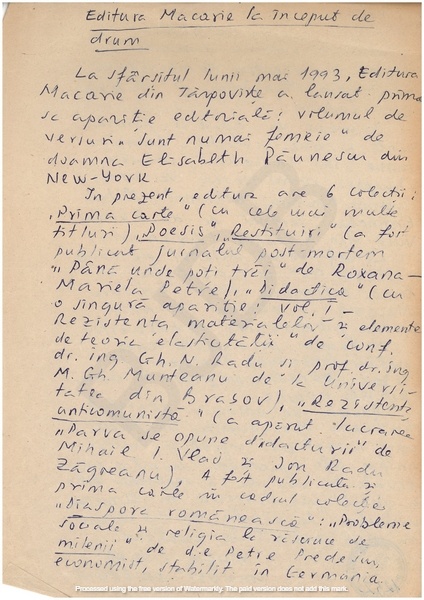 Editura Macarie la început de
drum
La sfârsitul lunii mai 1993, Editura
Macarie din Târgoviste a lansat prima
sa aparitie editorială: volumul de
versuri „Sunt numai femeie" de
doamna Elisabeth Păunescu din
New-York
In prezent, editura are 6 colectii:
„Prima carte" (cu cele mai multe
titluri), „Poesis", „Restituiri" (a fost
publicat jurnalul post-mortem
„Până unde poti trăi" de Roxana-
Mariela Petre), „Didactica" (cu
o singură aparitie: vol. I-
Rezistenta materialelor si elemente
de teoria elasticitătii" de conf.
dr. ing Gh. N. Radu si prof. dr. ing
M. Gh. Munteanu de la Universi-
tatea din Brasov), „Rezistenta
anticomunistă" (a apărut lucrarea
„Parva se opune dictaturii" de
Mihail I. Vlad si Ion Radu
Zăgreanu), A fost publicată si
prima carte în cadrul colectiei
„Diaspora românească": „Probleme
sociale si religia la răscruce de
milenii" de d-l Petre Predescu,
economist, stabilit în Germania
Processed using the free version of Watermarkly. The paid version does not add this mark.